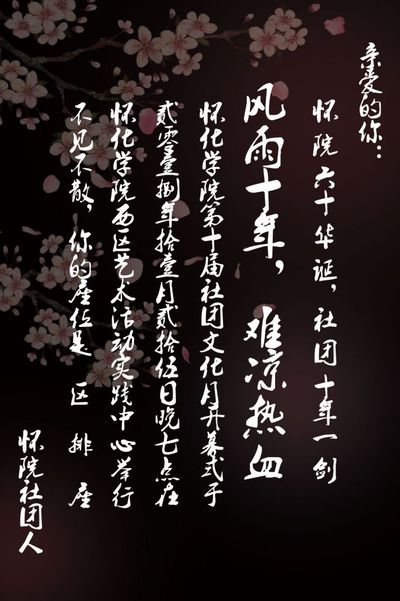 亲爱的你：
怀院六十华诞，社团十年一剑
风雨十年，难凉热血
怀化学院第十届社团文化月开幕式于
贰零壹捌年拾壹月贰拾伍日晚七点在
怀化学院西区艺术活动实践中心举行
不见不散，你的座位是 区 排 座
怀院社团人